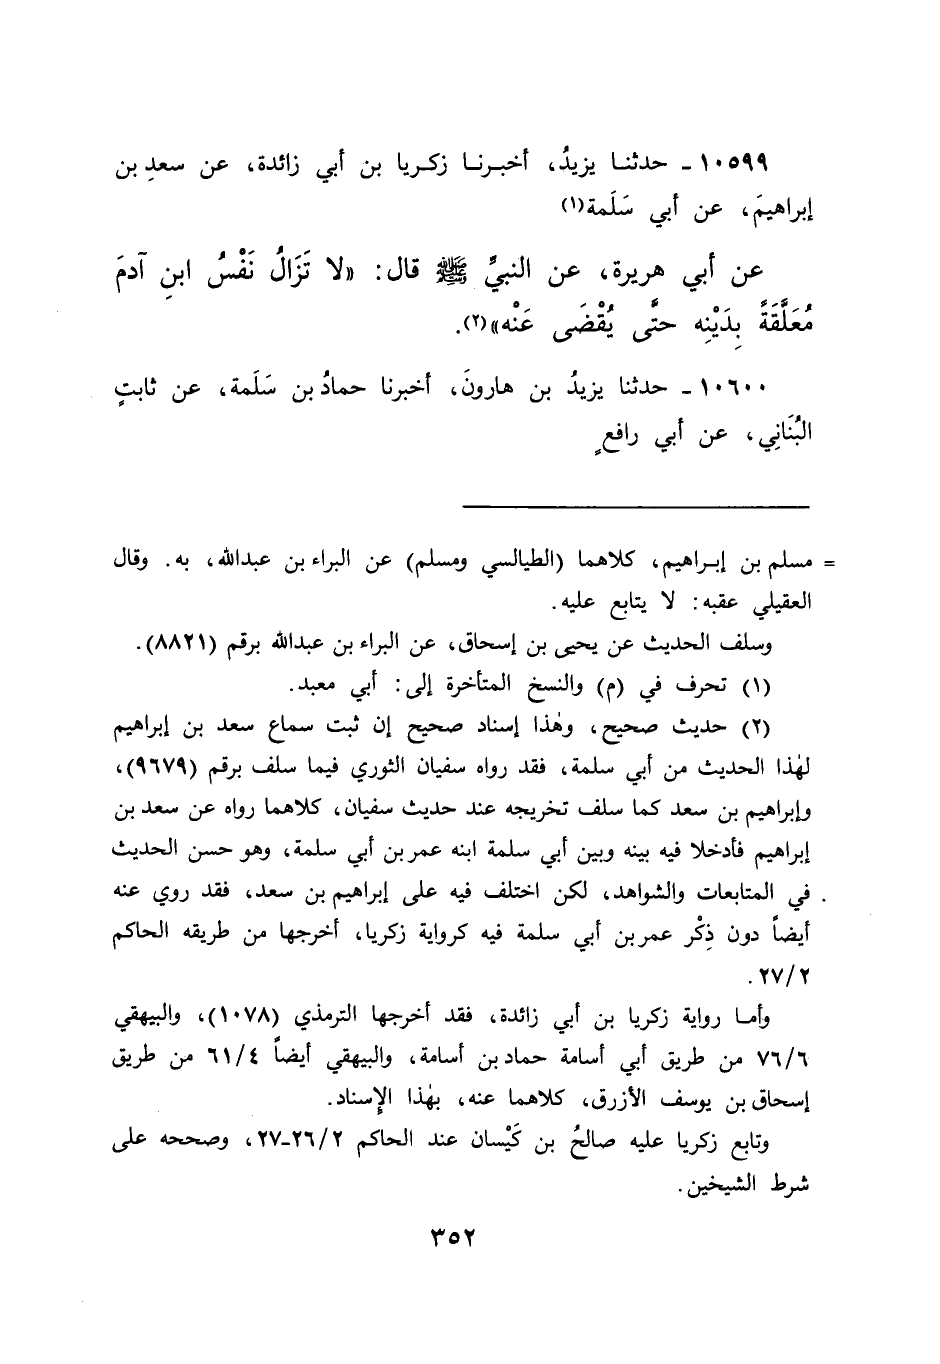 ١٠٥٩٩ ـ حدثنا يزيدُ، أخبرنا زكريا بن أبي زائدة، عن سعدِ بن
إبراهيمَ، عن أبي سَلَمة(١)
عن أبي هريرة، عن النبيِّ ﷺ قال: «لا تَزَالُ نَفْسُ ابنِ آدمَ
مُعَلَّقَةً بِدَيْنِه حتَّى يُقْضَى عَنْه»(٢).
١٠٦٠٠ ـ حدثنا يزيدُ بن هارونَ، أخبرنا حمادُ بن سَلَمة، عن ثابتٍ
البُنَانِي، عن أبي رافعٍ
= مسلم بن إبراهيم، كلاهما (الطيالسي ومسلم) عن البراء بن عبدالله، به. وقال
العقيلي عقبه: لا يتابع عليه.
وسلف الحديث عن يحيى بن إسحاق، عن البراء بن عبدالله برقم (٨٨٢١).
(١) تحرف في (م) والنسخ المتأخرة إلى: أبي معبد.
(٢) حديث صحيح، وهٰذا إسناد صحيح إن ثبت سماع سعد بن إبراهيم
لهٰذا الحديث من أبي سلمة، فقد رواه سفيان الثوري فيما سلف برقم (٩٦٧٩)،
وإبراهيم بن سعد كما سلف تخريجه عند حديث سفيان، كلاهما رواه عن سعد بن
إبراهيم فأدخلا فيه بينه وبين أبي سلمة ابنه عمر بن أبي سلمة، وهو حسن الحديث
في المتابعات والشواهد، لكن اختلف فيه على إبراهيم بن سعد، فقد روي عنه
أيضاً دون ذِكْر عمر بن أبي سلمة فيه كرواية زكريا، أخرجها من طريقه الحاكم
٢٧/٢.
وأما رواية زكريا بن أبي زائدة، فقد أخرجها الترمذي (١٠٧٨)، والبيهقي
٧٦/٦ من طريق أبي أسامة حماد بن أسامة، والبيهقي أيضاً ٦١/٤ من طريق
إسحاق بن يوسف الأزرق، كلاهما عنه، بهٰذا الإسناد.
وتابع زكريا عليه صالحُ بن كَيْسان عند الحاكم ٢٦/٢-٢٧، وصححه على
شرط الشيخين.
٣٥٢